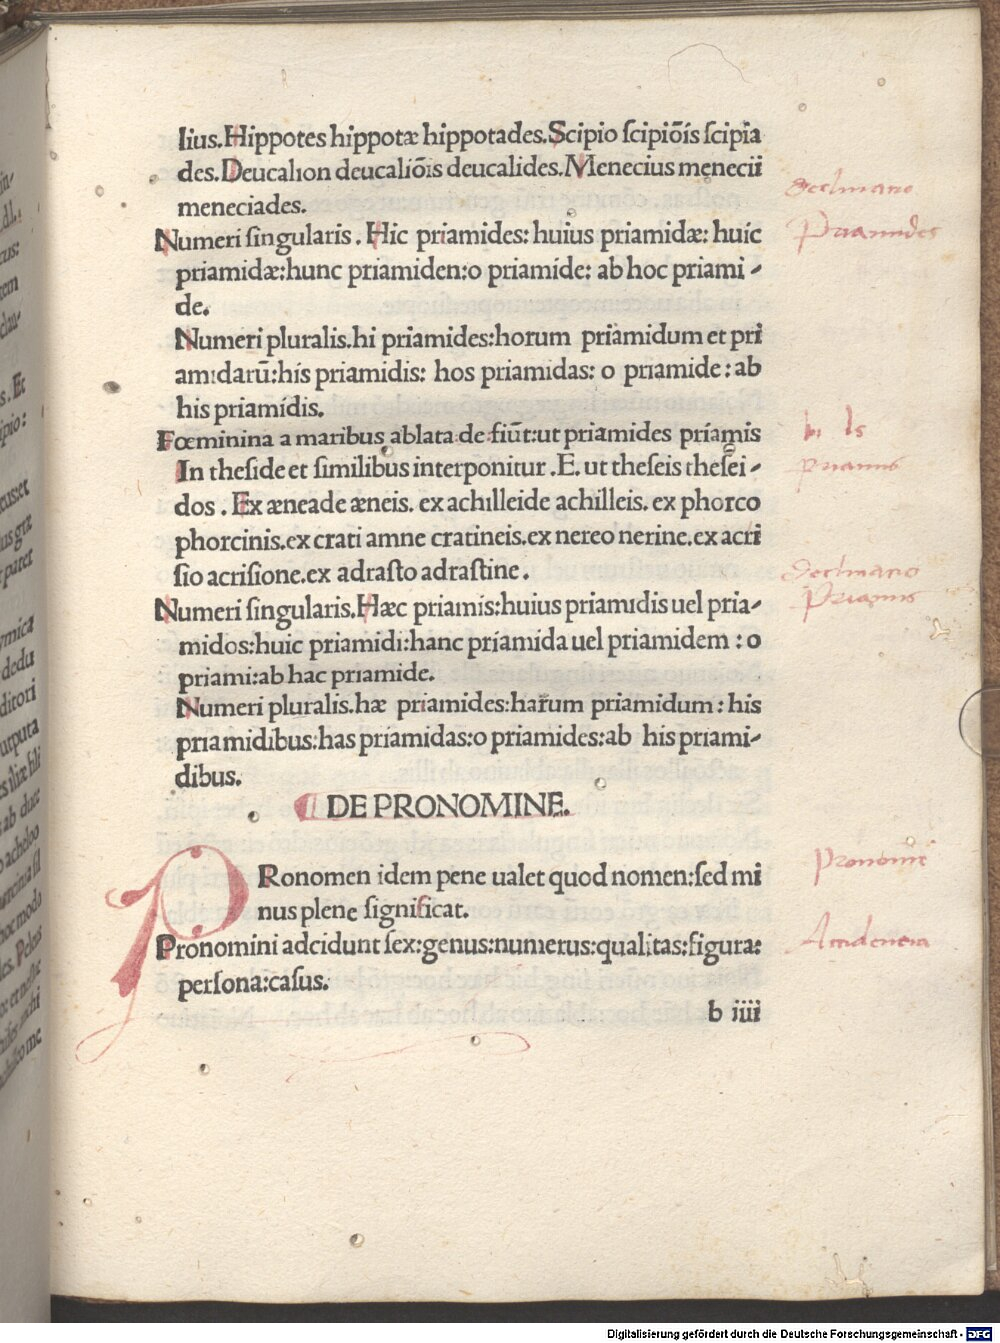 lius.Hippotes hippotæ hippotades.Scipio ſcipiōis ſcipia
des.Deucalion deucaliōis deucalides.Menecius menecii
meneciades.
Numeri ſingularis. Hic priamides: huius priamidæ: huic
priamidæ:hunc priamiden:o priamide: ab hoc priami-
de.
Numeri pluralis.hi priamides:horum priamidum et pri
amidarū:his priamidis: hos priamidas: o priamide: ab
his priamidis.
Fœminina a maribus ablata de fiūt:ut priamides priamis
In theſide et ſimilibus interponitur .E. ut theſeis theſei-
dos . Ex æneade æneis. ex achilleide achilleis. ex phorco
phorcinis.ex crati amne cratineis.ex nereo nerine.ex acri
ſio acriſione.ex adraſto adraſtine.
Numeri ſingularis.Hæc priamis:huius priamidis uel pria-
midos:huic priamidi:hanc priamida uel priamidem : o
priami:ab hac priamide.
Numeri pluralis.hæ priamides:harum priamidum: his
priamidibus:has priamidas:o priamides:ab his priami-
dibus.
DE PRONOMINE.
PRonomen idem pene ualet quod nomen:ſed mi
nus plene ſignificat.
Pronomini adcidunt ſex:genus:numerus:qualitas:figura:
perſona:caſus.
b iiii
declinatio
Priamides
priamis
declinatio
Priamis
Pronomen
Accidencia
Digitalisierung gefördert durch die Deutsche Forschungsgemeinschaft - DFG